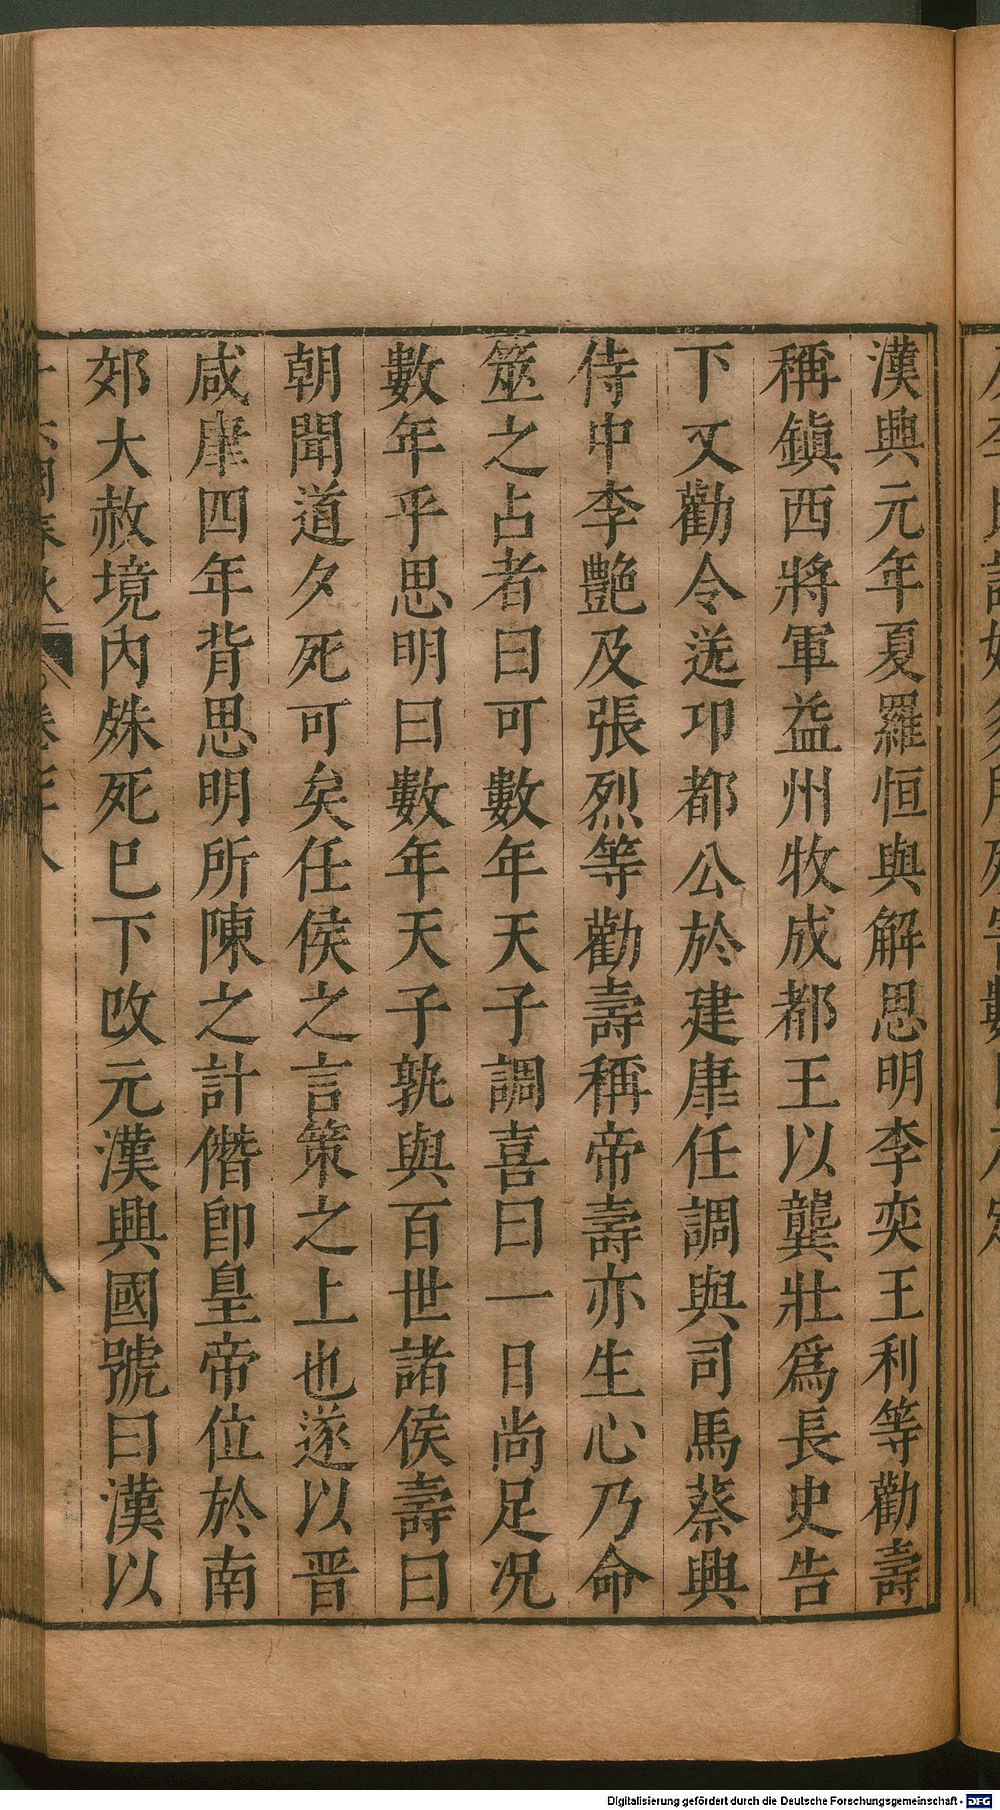 漢興元年夏羅恒與解思明李奕王利等勸壽
稱鎮西將軍益州牧成都王以龔壯爲長史告
下又勸令送邛都公於建康任調與司馬蔡興
侍中李艶及張烈等勸壽稱帝壽亦生心乃命
筮之占者曰可數年天子調喜曰一日尚足况
數年乎思明曰數年天子孰與百世諸侯壽曰
朝聞道夕死可矣任侯之言策之上也遂以晋
咸康四年背思明所陳之計僭卽皇帝位於南
郊大赦境内殊死巳下改元漢興國號曰漢以
Digitalisierung gefördert durch die Deutsche Forschungsgemeinschaft - DFG